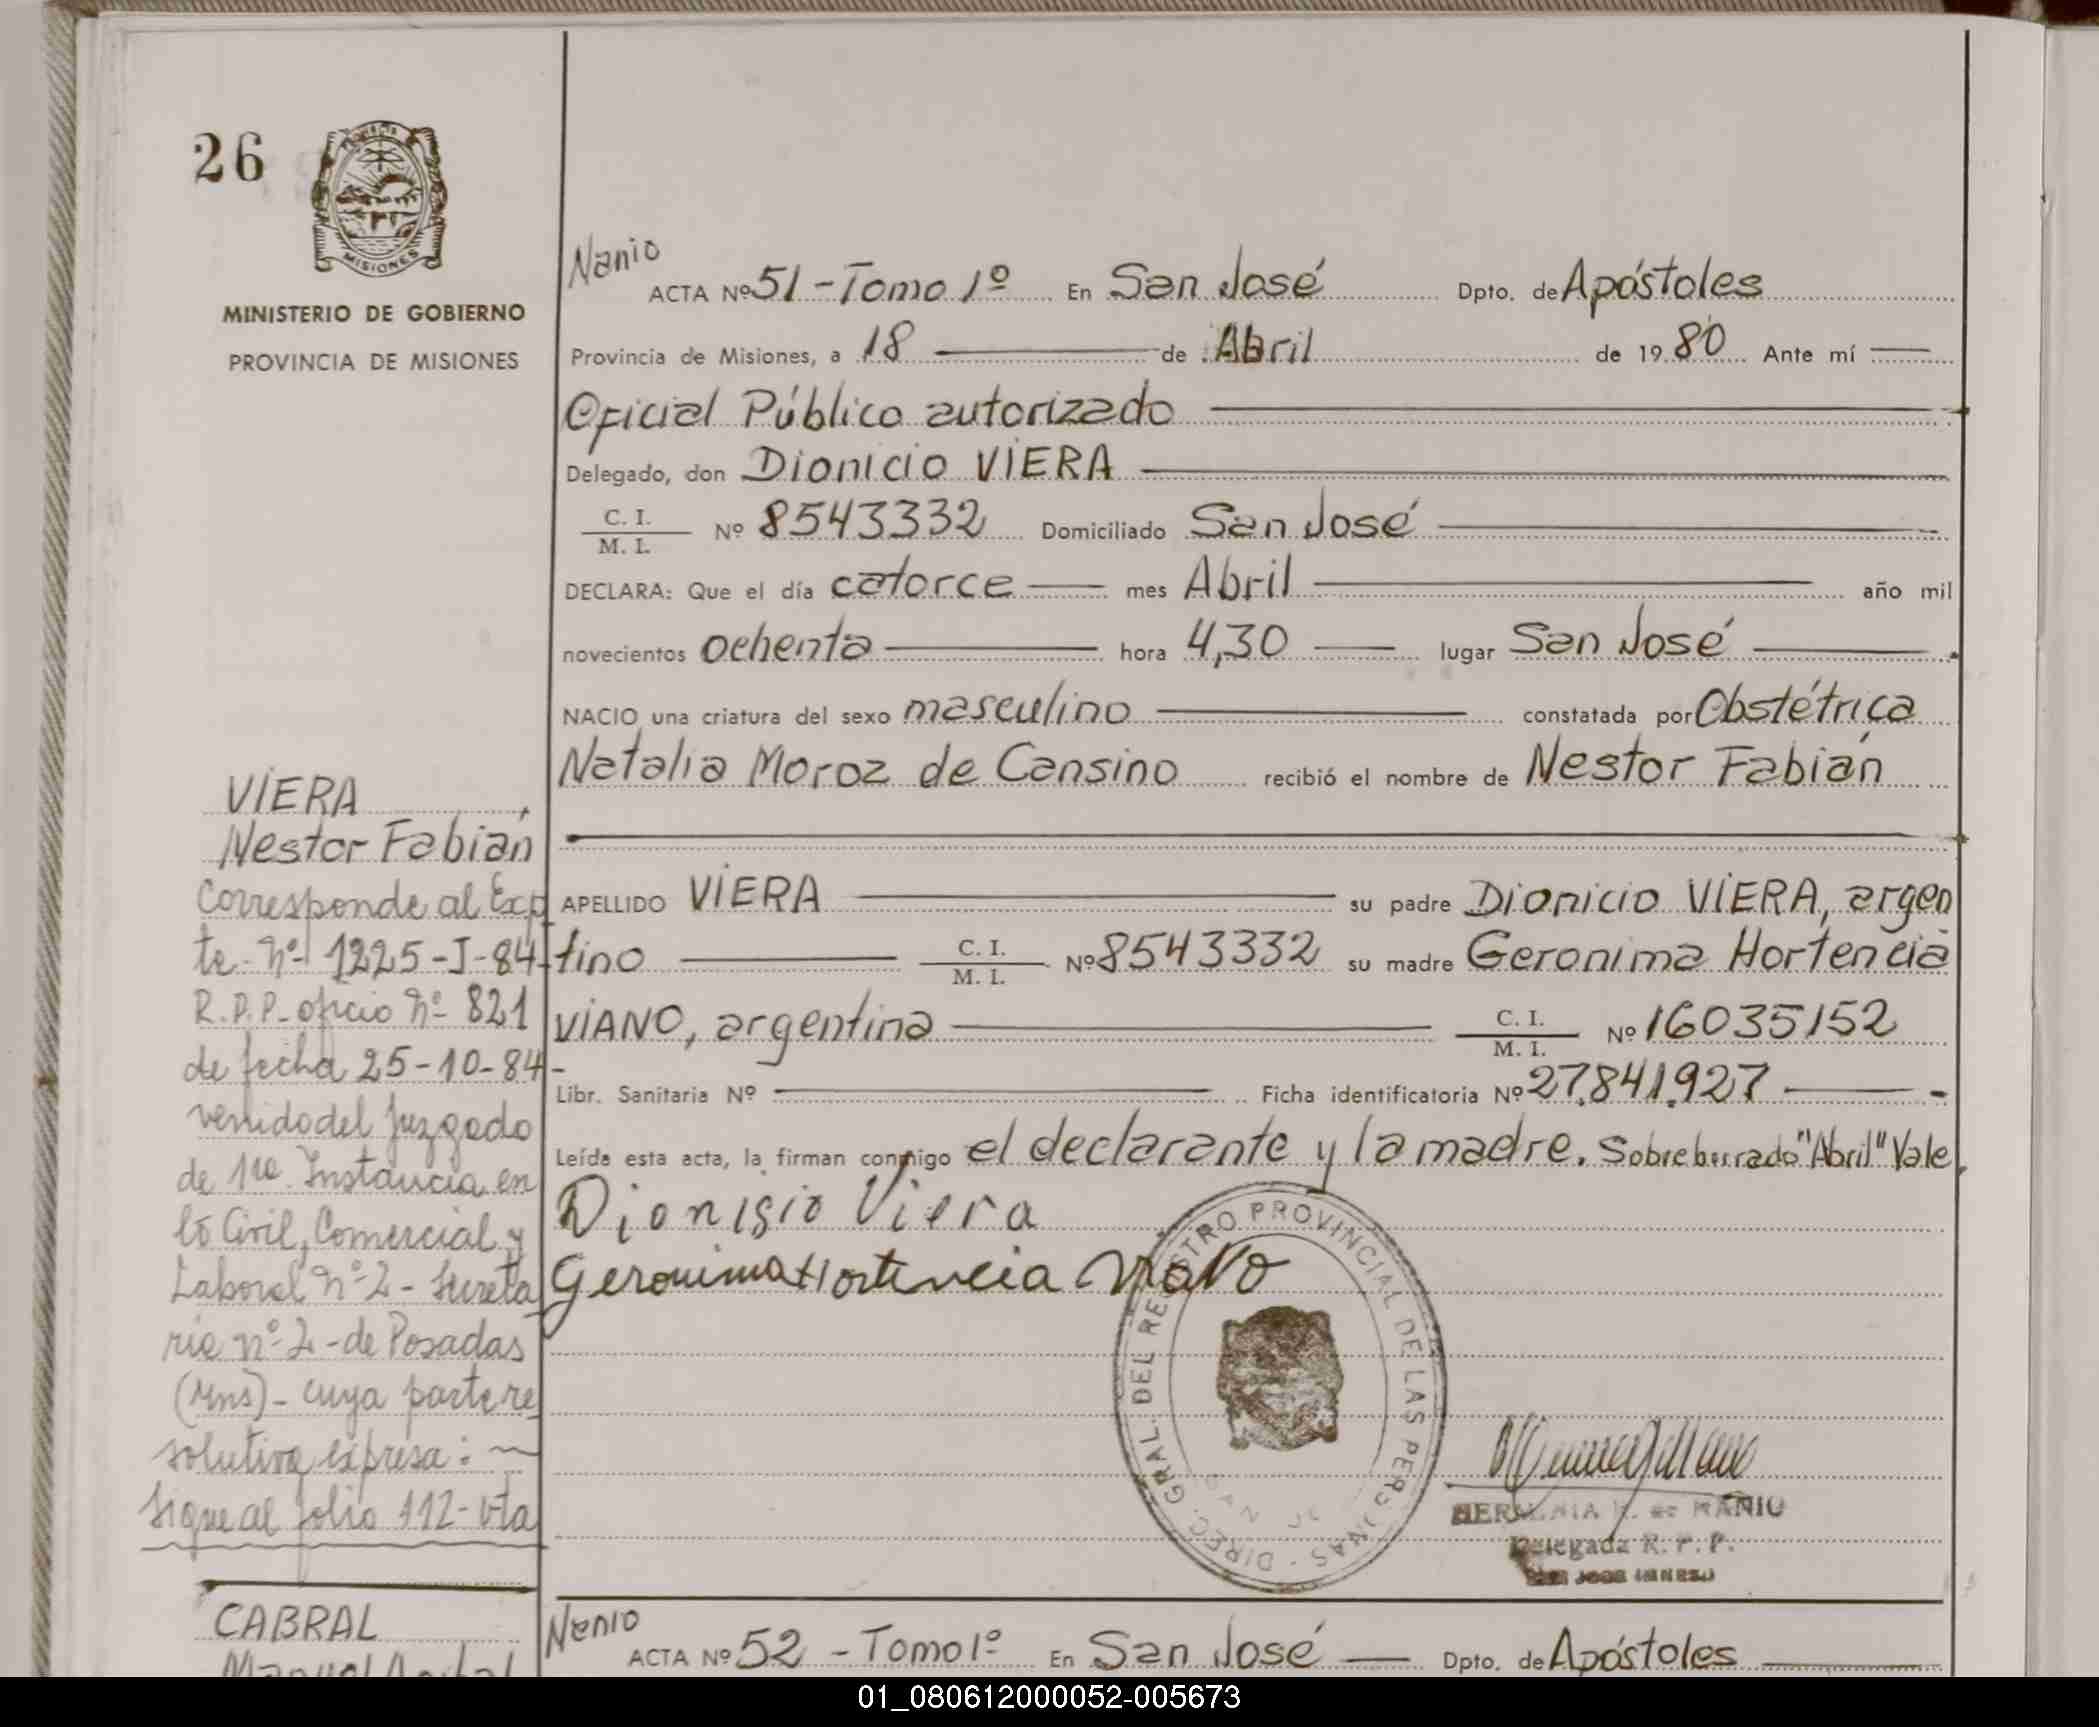 26
MISIONES
MINISTERIO DE GOBIERNO
PROVINCIA DE MISIONES
Nanio
ACTA Nº 51 - Tomo 1º En San José Dpto. de Apóstoles
Provincia de Misiones, a 18 de Abril de 1980 Ante mí
Oficial Público autorizado
Delegado, don Dionicio VIERA
C. I.
M. I.
Nº 8543332 Domiciliado San José
DECLARA: Que el día catorce mes Abril año mil
novecientos ochenta hora 4,30 lugar San José
NACIO una criatura del sexo masculino constatada por Obstétrica
Natalia Moroz de Cansino recibió el nombre de Nestor Fabián
APELLIDO VIERA su padre Dionicio VIERA, argen
tino C. I. M. I. Nº 8543332 su madre Geronima Hortencia
VIANO, argentina C. I. M. I. Nº 16035152
Libr. Sanitaria Nº Ficha identificatoria Nº 27.841.927 -
Leída esta acta, la firman conmigo el declarante y la madre. Sobreborrado "Abril" Vale.
Dionisio Viera
Geronima Hortencia Viano
DIREC. GRAL. DEL REGISTRO PROVINCIAL DE LAS PERSONAS
SAN JO
de NANIO
Delegada R. P. P.
VIERA
Nestor Fabián
Corresponde al Exp
te. nº 1225-J-84-
R.P.P. oficio nº 821
de fecha 25-10-84-
venido del Juzgado
de 1ra. Instancia en
lo Civil, Comercial y
Laboral nº 2 - Secreta
ría nº 2 - de Posadas
(Mns) - cuya parte re
solutiva expresa:
Sigue al folio 112- vta
CABRAL
Nanio
ACTA Nº 52 - Tomo 1º En San José Dpto. de Apóstoles
01_080612000052-005673